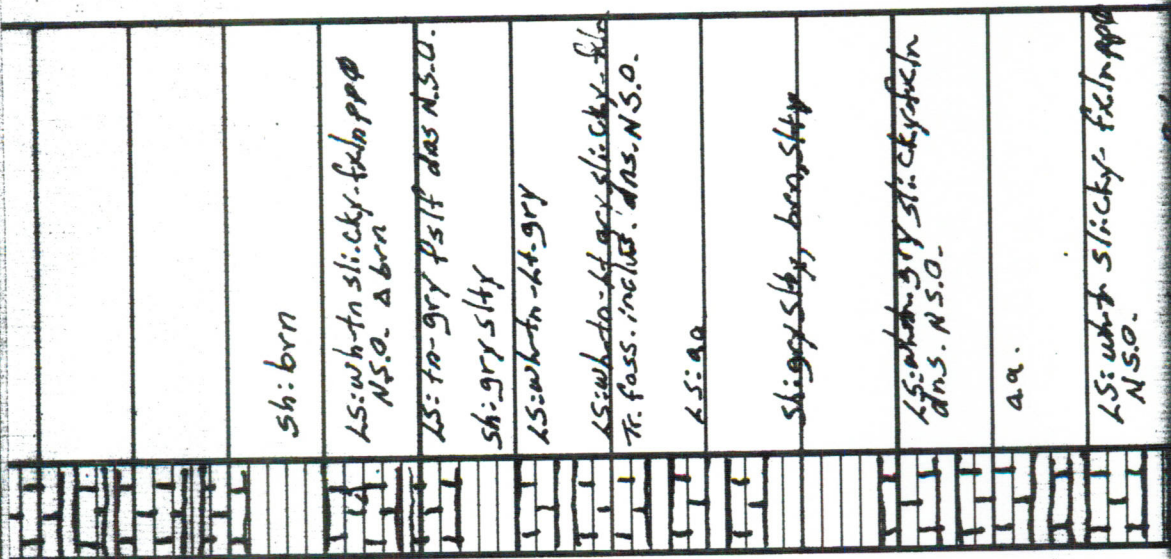 sh: brn
LS: wh-tn slicky-fxln ppø
N.S.O. Δ brn
LS: tn-gry fslf dns N.S.O.
sh: gry slty
LS: wh-tn-Lt-gry
LS: wh-tn-Lt gry slicky-fxln
Tr. foss. inclus. dns. N.S.O.
LS: aa
sh: gry slty, brn, slty
LS: wh-tn gry slicky-fxln
dns. N.S.O.
aa.
LS: wh-tn slicky-fxln ppø
N.S.O.